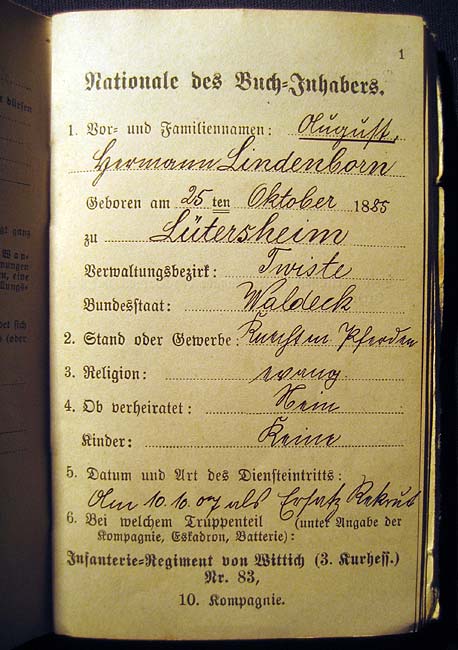 1
Nationale des Buch-Inhabers.
1. Vor- und Familiennamen: August,
Hermann Lindenborn
Geboren am 25 ten Oktober 1885
zu Lütersheim
Verwaltungsbezirk: Twiste
Bundesstaat: Waldeck
2. Stand oder Gewerbe: Pferden
3. Religion: evang
4. Ob verheiratet: Nein
Kinder: Keine
5. Datum und Art des Diensteintritts:
Am 10.10.07 als Ersatz Rekrut
6. Bei welchem Truppenteil (unter Angabe der
Kompagnie, Eskadron, Batterie):
Infanterie-Regiment von Wittich (3. Kurhess.)
Nr. 83,
10. Kompagnie.